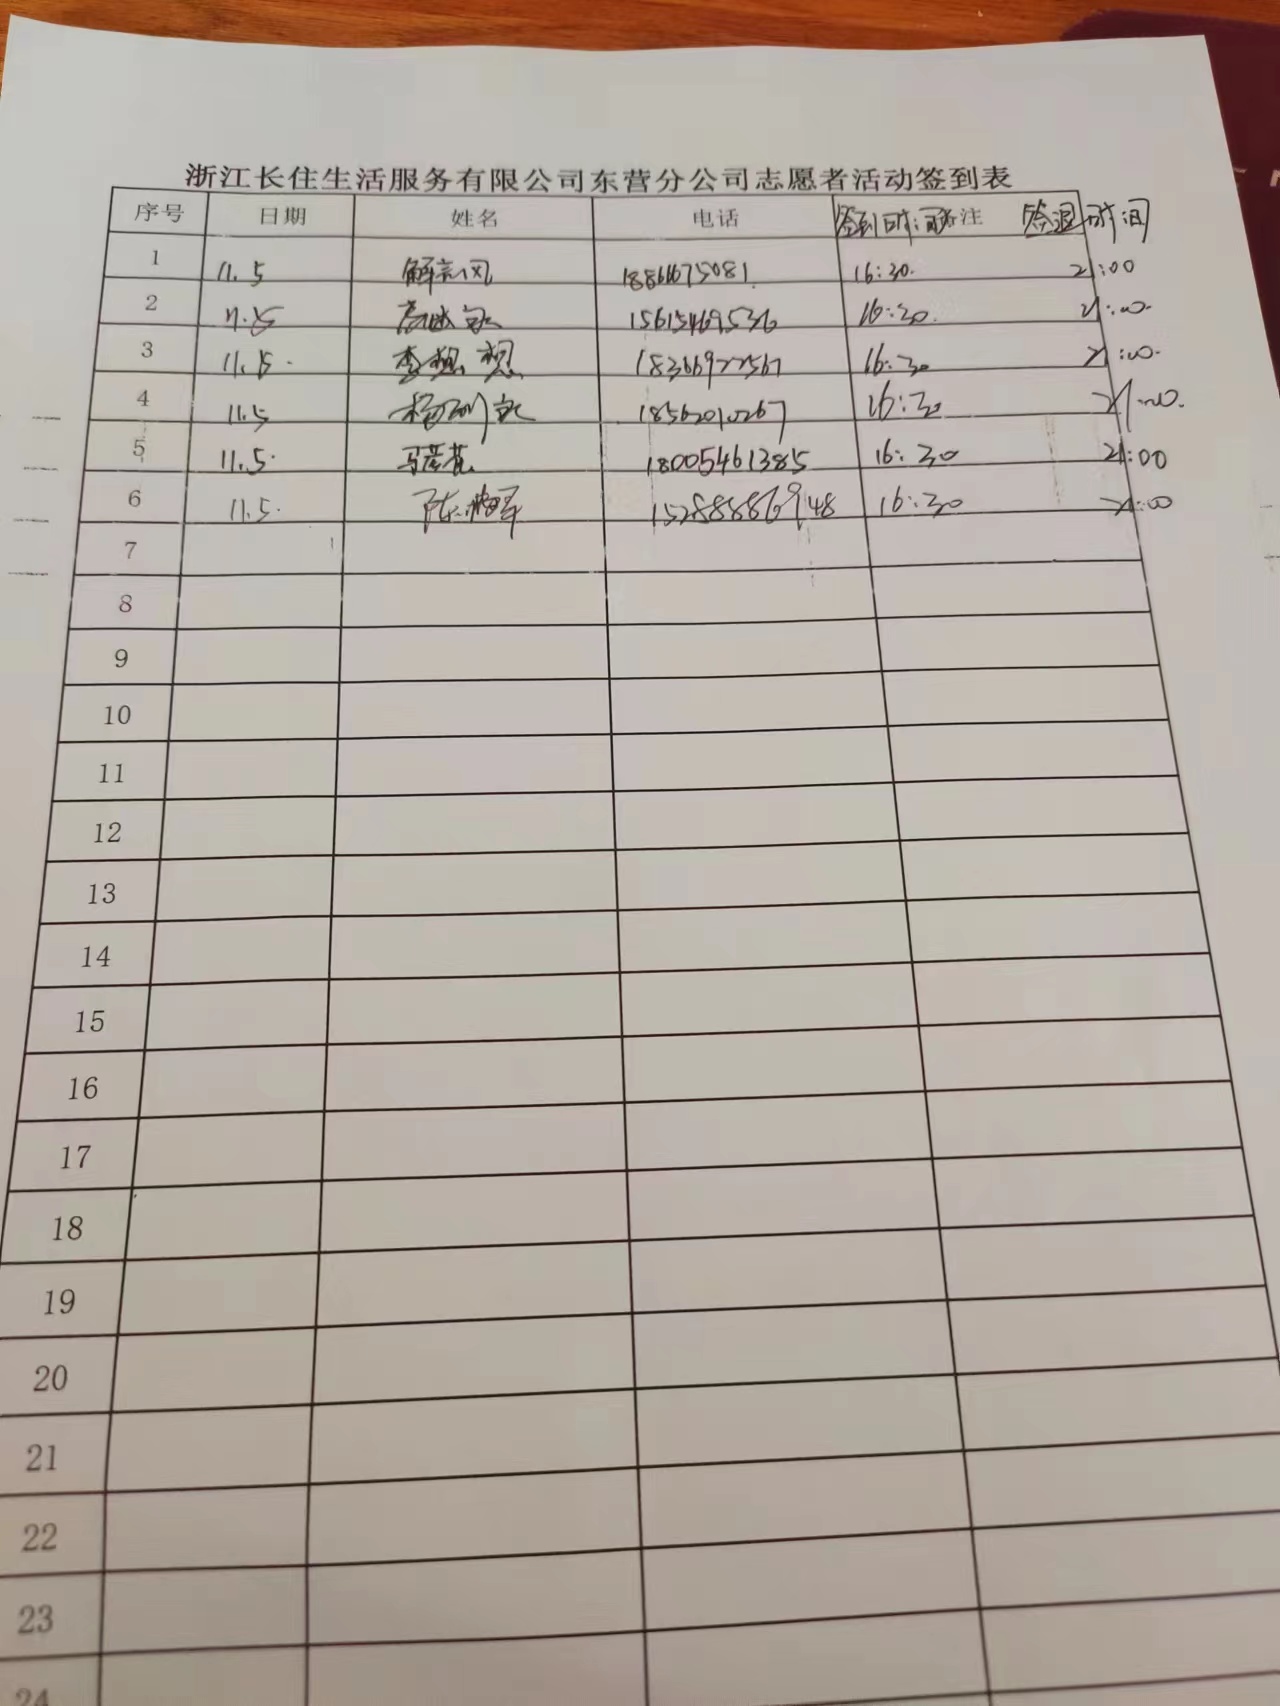 浙江长住生活服务有限公司东营分公司志愿者活动签到表
序号 日期 姓名 电话 签到时间 备注 签退时间
1 11.5 18866675081 16:30. 21:00
2 11.5 15615469536 16:30. 21:00.
3 11.5. 李想想 18366922567 16:30 21:00.
4 11.5 16:30 21:00.
5 11.5. 18005461385 16:30 21:00
6 11.5. 15288886948 16:30 21:00
7
8
9
10
11
12
13
14
15
16
17
18
19
20
21
22
23
24